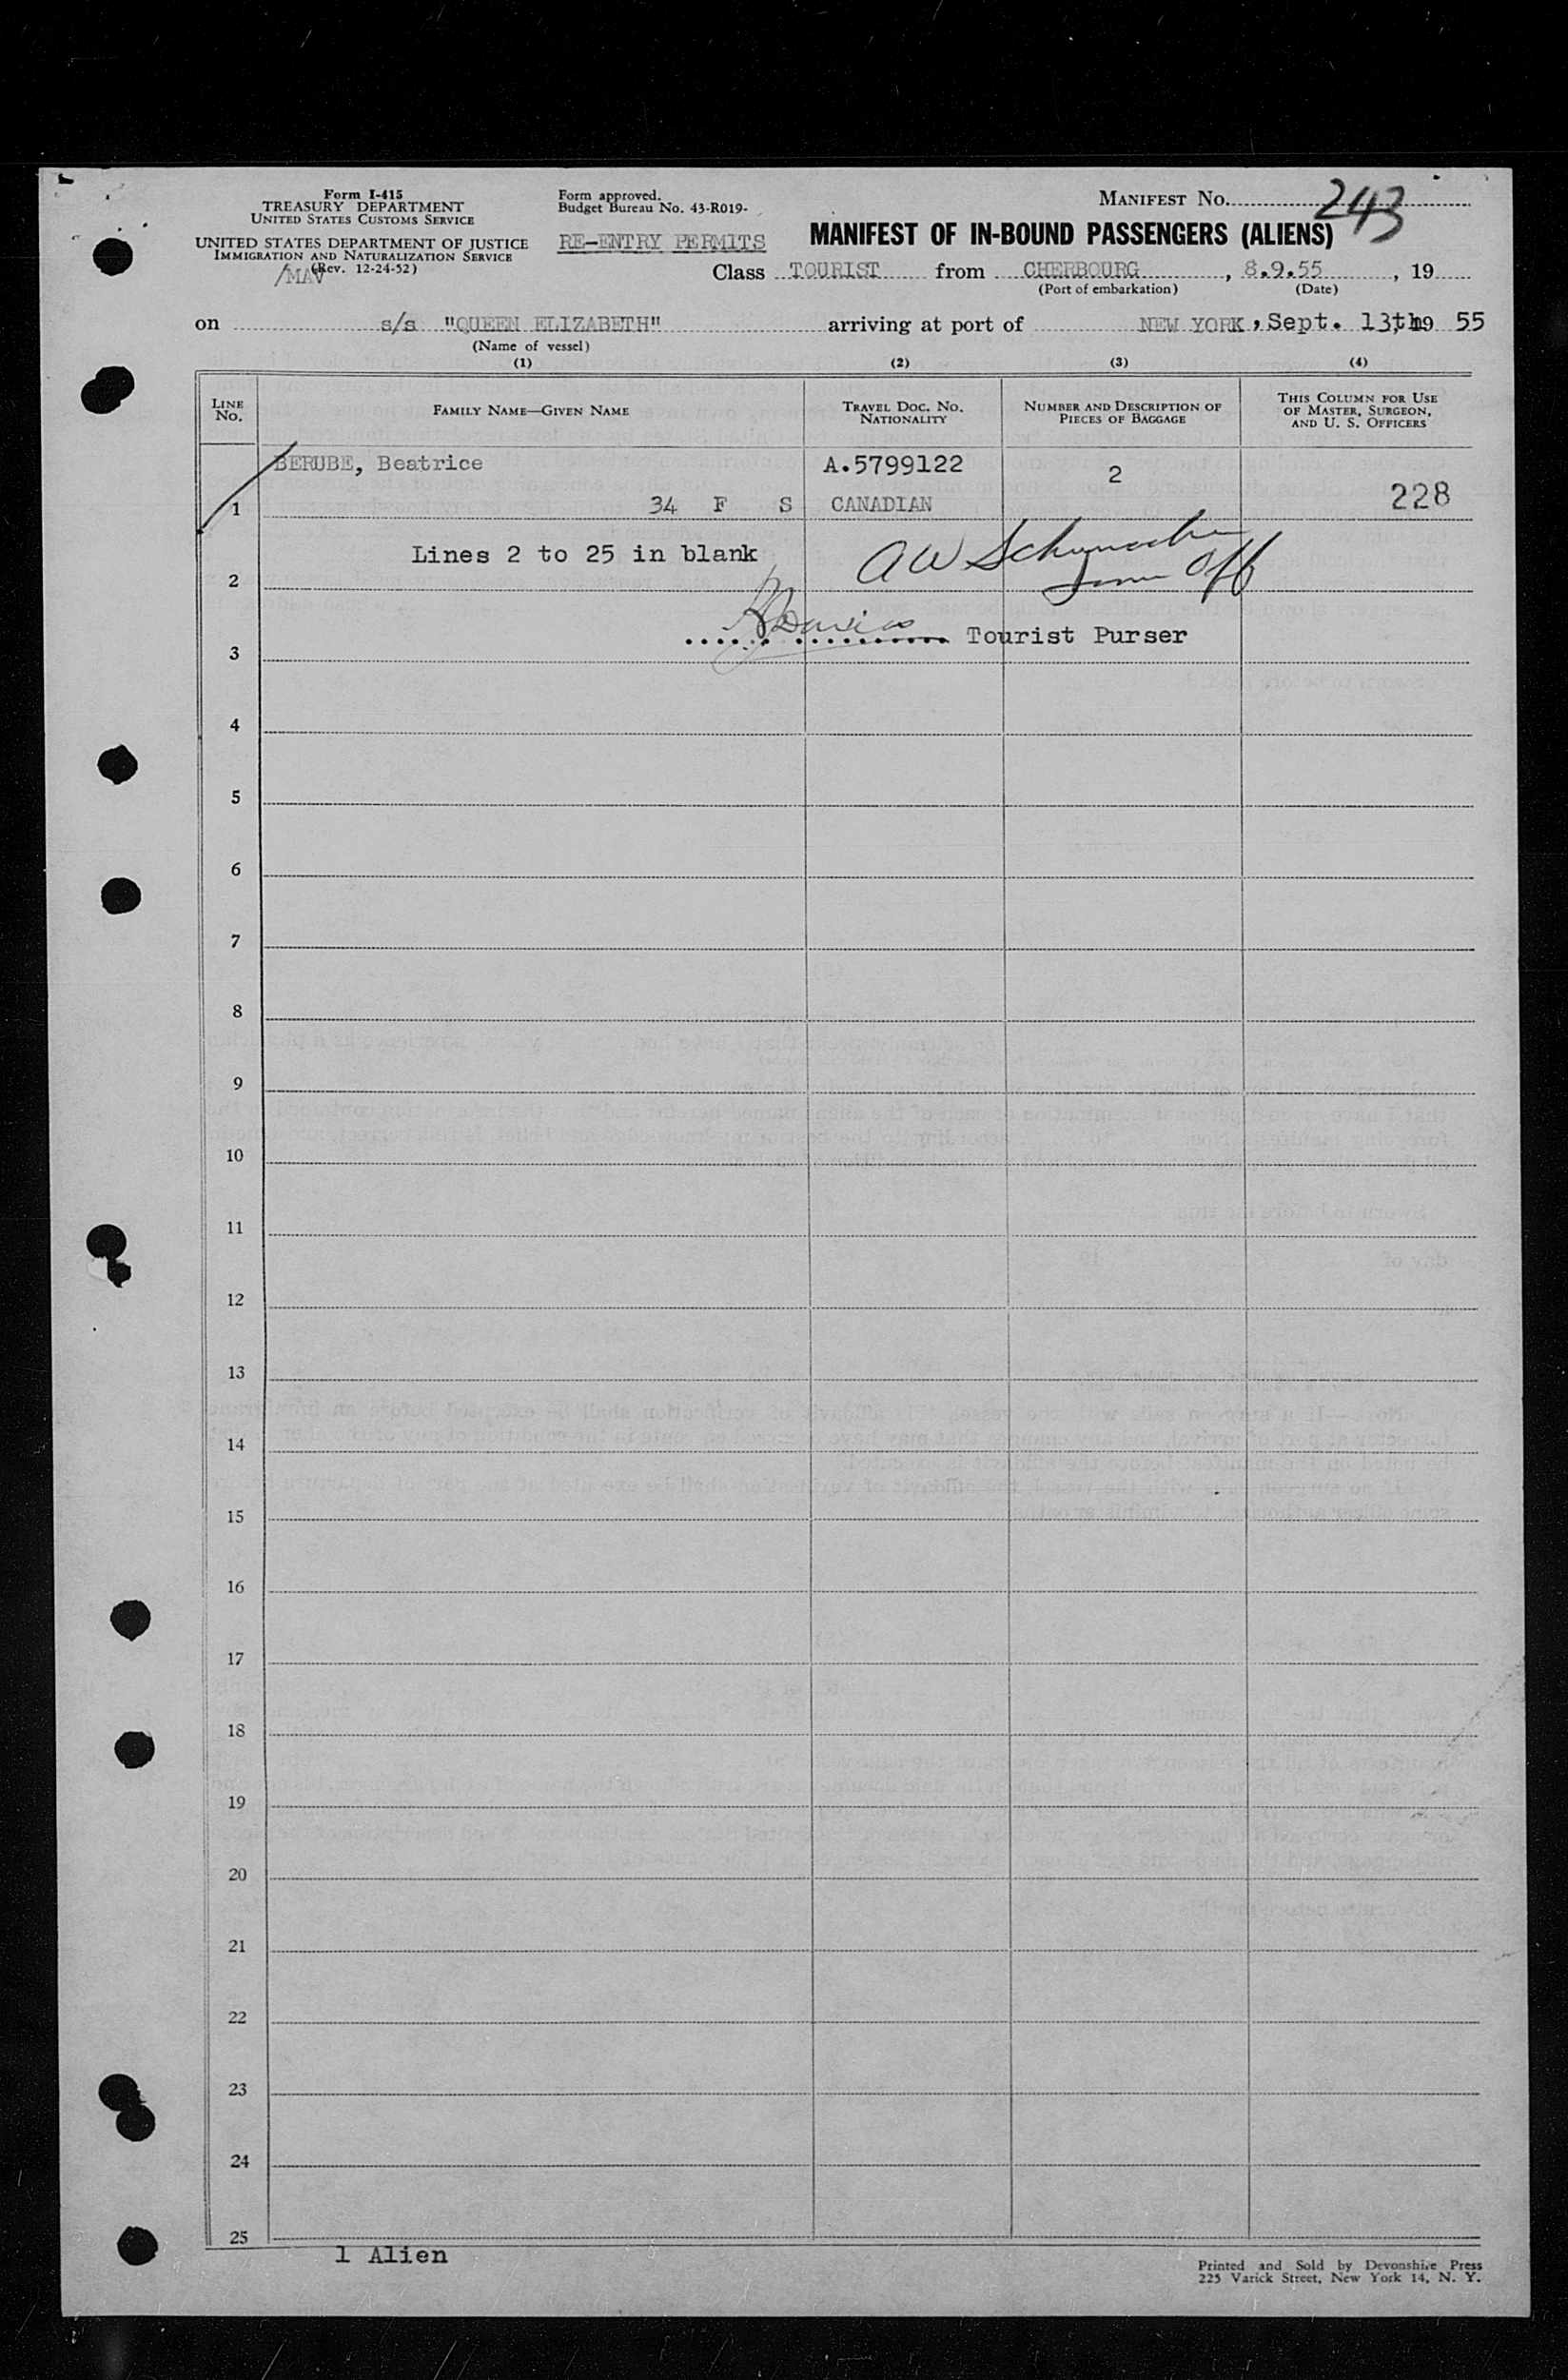 Form I-415
TREASURY DEPARTMENT
UNITED STATES CUSTOMS SERVICE
UNITED STATES DEPARTMENT OF JUSTICE
IMMIGRATION AND NATURALIZATION SERVICE
(Rev. 12-24-52)
/MAV
Form approved.
Budget Bureau No. 43-R019-
RE-ENTRY PERMITS
MANIFEST No. 243
MANIFEST OF IN-BOUND PASSENGERS (ALIENS)
Class TOURIST from CHERBOURG, 8.9.55, 19
(Port of embarkation) (Date)
on s/s "QUEEN ELIZABETH" arriving at port of NEW YORK, Sept. 13th, 19 55
(Name of vessel)
(1) (2) (3) (4)
LINE No.
FAMILY NAME—GIVEN NAME
TRAVEL DOC. No. NATIONALITY
NUMBER AND DESCRIPTION OF PIECES OF BAGGAGE
THIS COLUMN FOR USE OF MASTER, SURGEON, AND U. S. OFFICERS
BERUBE, Beatrice A.5799122 2
1 34 F S CANADIAN 228
Lines 2 to 25 in blank A W Schumacher
2 Imm Off
Davies Tourist Purser
3
4
5
6
7
8
9
10
11
12
13
14
15
16
17
18
19
20
21
22
23
24
25
1 Alien
Printed and Sold by Devonshire Press
225 Varick Street, New York 14, N. Y.